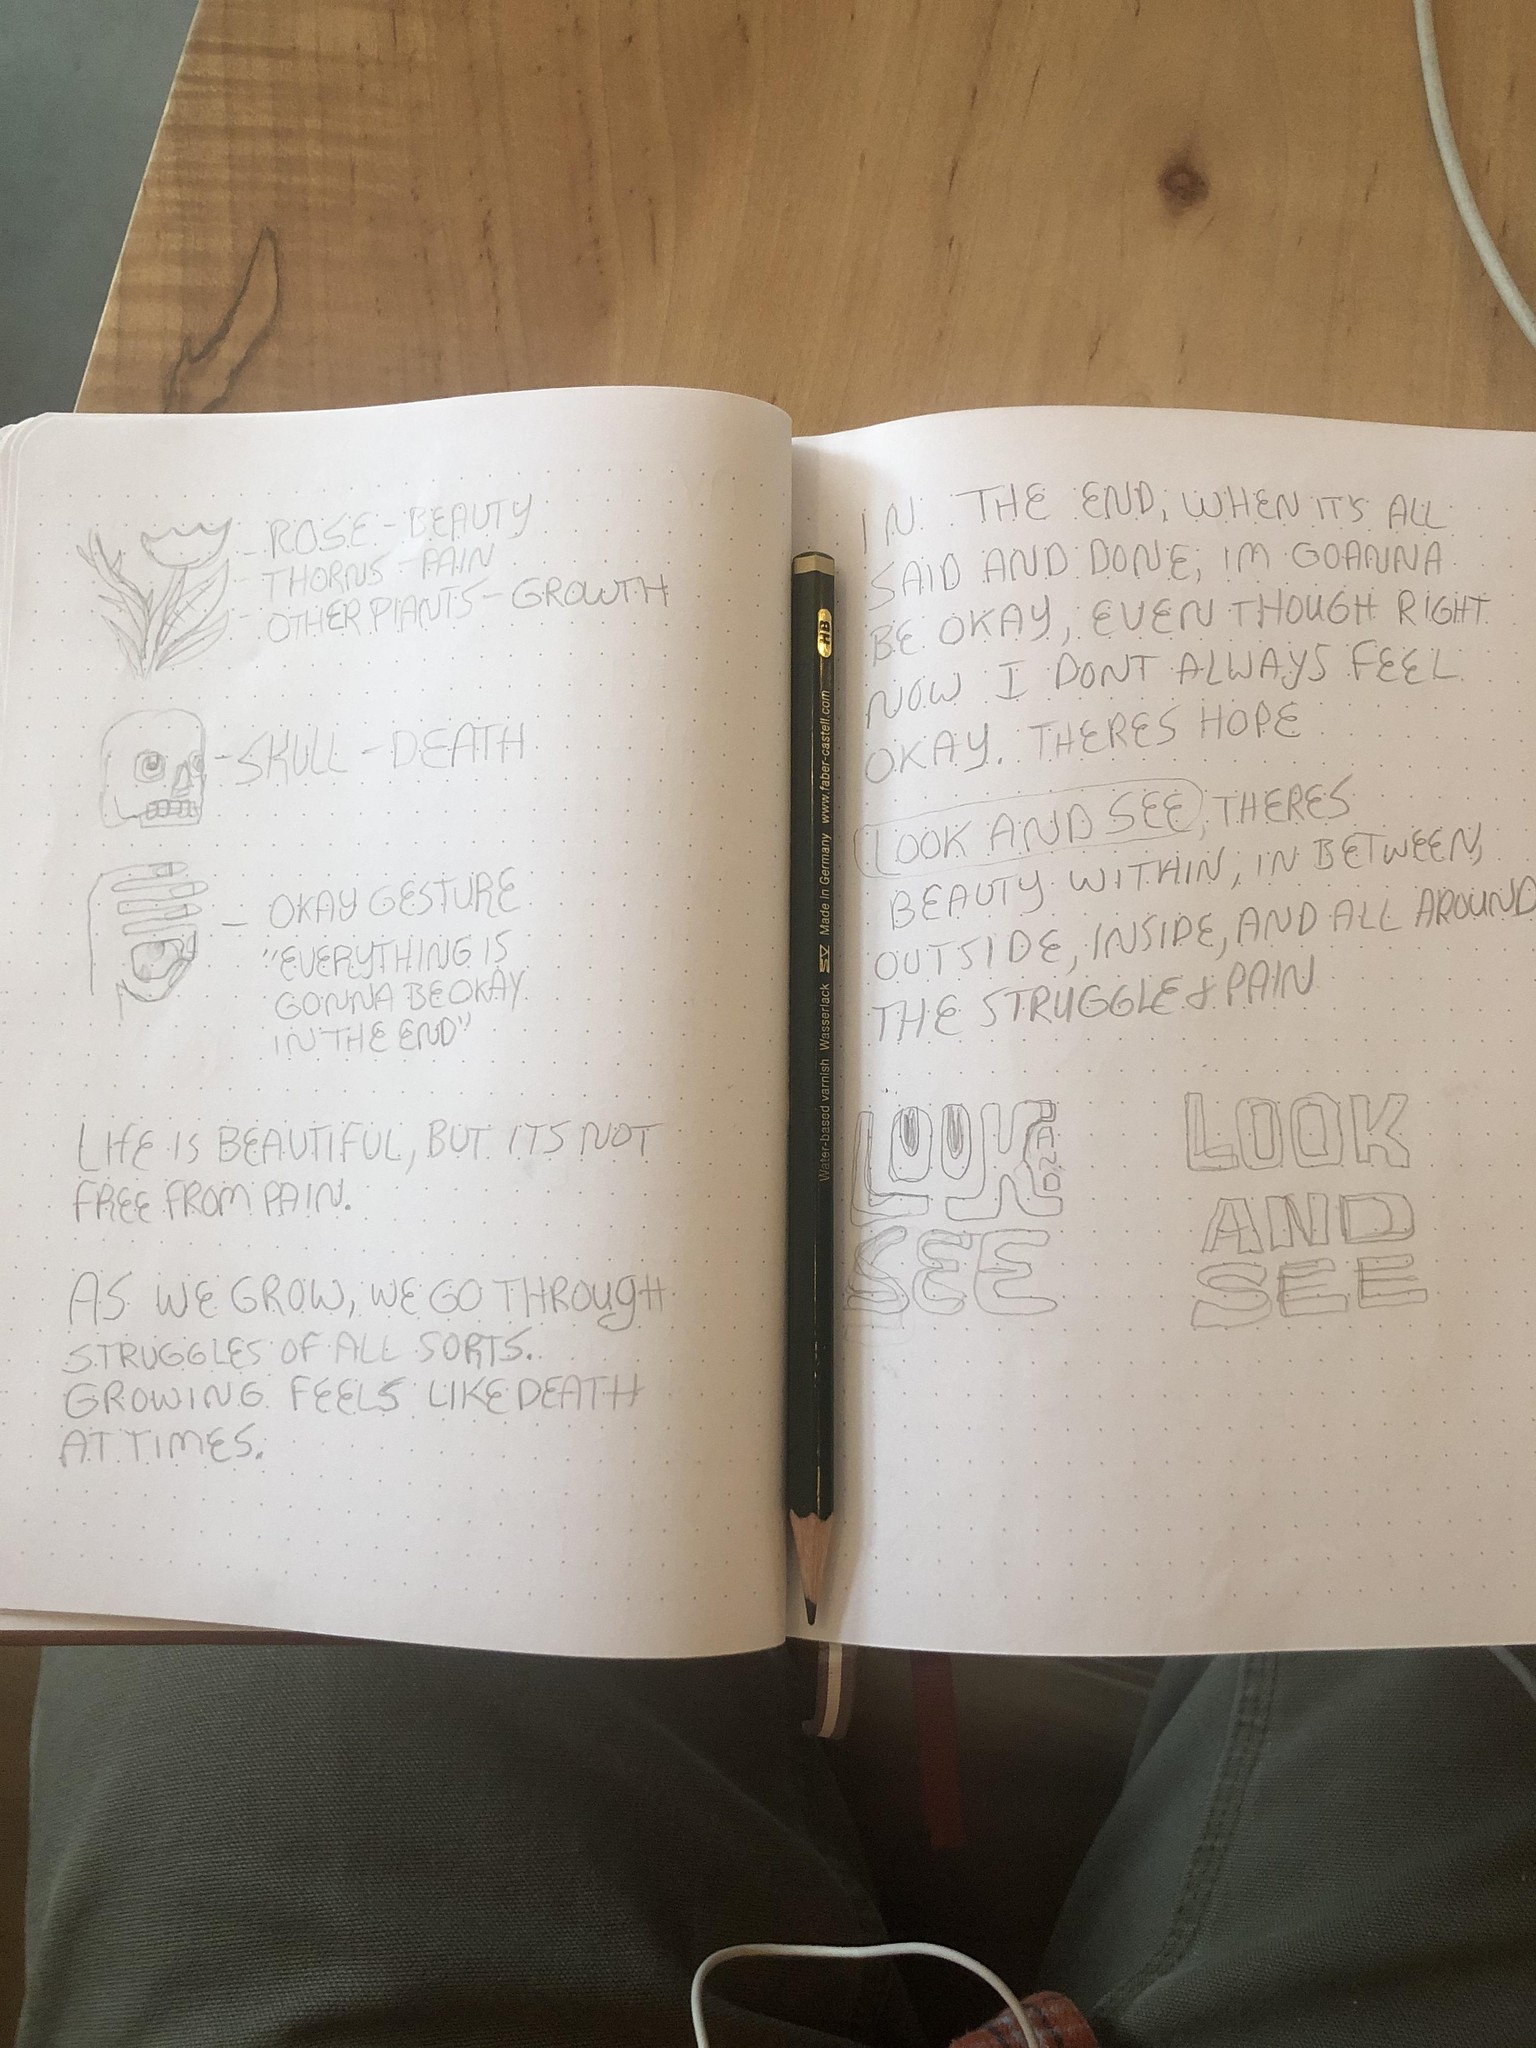 - ROSE - BEAUTY
THORNS - PAIN
- OTHER PLANTS - GROWTH
- SKULL - DEATH
- OKAY GESTURE
"EVERYTHING IS
GONNA BE OKAY
IN THE END"
LIFE IS BEAUTIFUL, BUT ITS NOT
FREE FROM PAIN.
AS WE GROW, WE GO THROUGH
STRUGGLES OF ALL SORTS.
GROWING FEELS LIKE DEATH
AT TIMES.
HB
Water-based varnish Wasserlack SV Made in Germany www.faber-castell.com
IN THE END, WHEN IT'S ALL
SAID AND DONE, IM GOANNA
BE OKAY, EVEN THOUGH RIGHT
NOW I DONT ALWAYS FEEL
OKAY. THERES HOPE
LOOK AND SEE, THERES
BEAUTY WITHIN, IN BETWEEN,
OUTSIDE, INSIDE, AND ALL AROUND
THE STRUGGLE & PAIN
LOOK AND
SEE
LOOK
AND
SEE